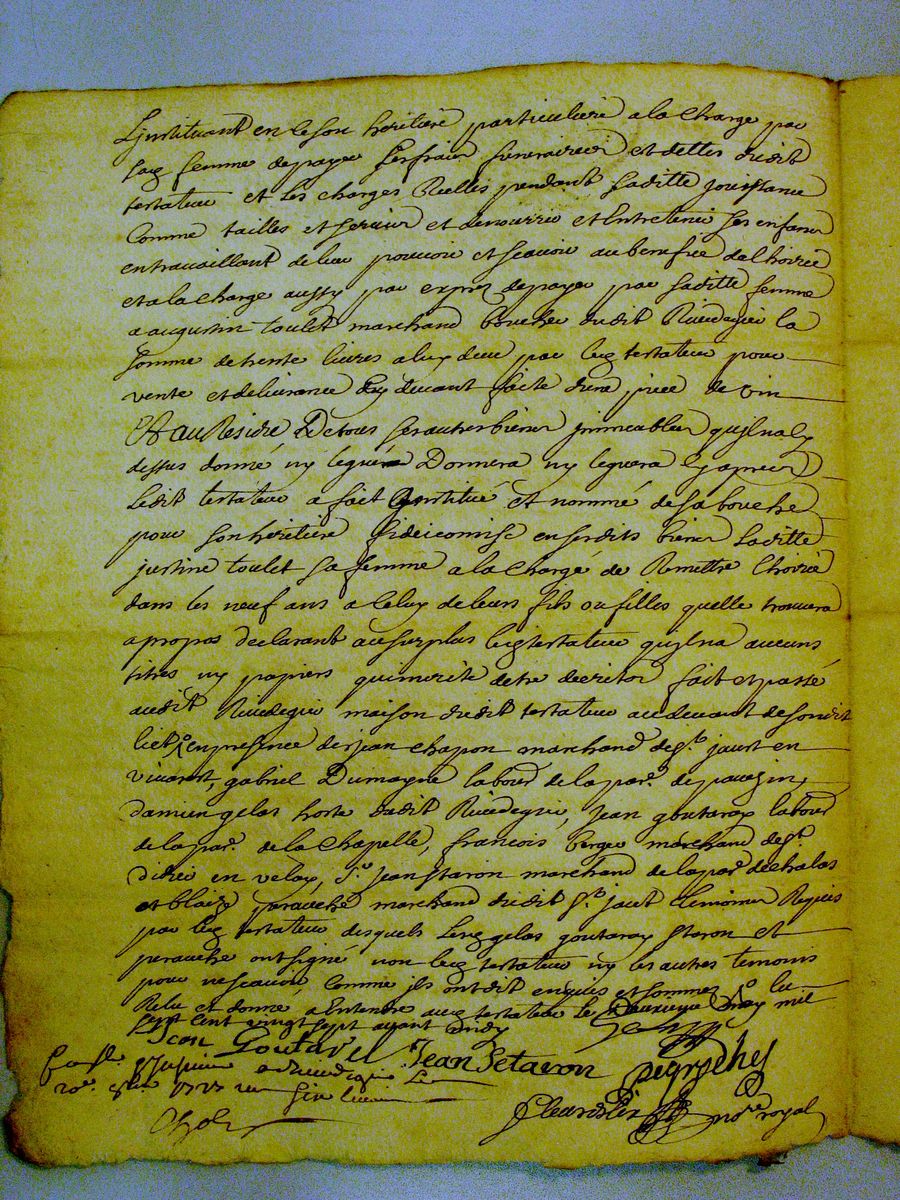 L'instituant en ce son heritiere particuliere a la charge par
sad femme de payer les fraix funeraires et debtes dudit
testateur et les charges Reelles pendant saditte jouissance
Comme tailles et servis et de nourrir et Entretenir ses enfans
en travaillant de leur pouvoir et scavoir au benefice de l hoirie
et a la charge aussy par exprez de payer par saditte femme
a augustin toulet marchand boucher dudit Rivedegier la
somme de trente livres a luy deue par led testateur pour
vente et delivrance cy devant faitte d'une piece de vin
Et au Residu De tous ses autres biens immeubles quil na cy
dessus donné ny legué Donnera ny leguera cy apres
Ledit testateur a fait Institué et nommé de sa bouche
pour son heritiere fideicomise en sesdits biens Laditte
justine toulet sa femme a la chargé de Remettre l hoirie
dans les neuf ans a celuy de leurs fils ou filles quelle trouvera
a propos declarant au surplus led testateur quil na aucuns
titres ny papiers qui merite detre decritor fait et passé
audit Rivedegier maison dudit testateur au devant de son dit
lict en presence de s jean Chapon marchand de st jaust en
vivarest, gabriel Dumayne labour de la par. de pavezin,
damien gelas hoste dudit Rivedegier, Jean goutarey labour
de la par. de la Chapelle, francois berger marchand de st
didier en velay, s. Jean staron marchand de la par de Chalas
et blaize parauche marchand dudit st jaut temoins Requis
par led testateur desquels lesd gelas goutarey staron et
perauche ont signé non led testateur ny les autres temoins
pour ne scavoir, Comme ils ont dit enquis et sommez lu
Relu et donne a Entendre aud testateur le Deuxieme may mil
sept cent vingt sept avant midy
Jean Goutarel Jean Setaron
a Rivedegier Le
1727
six livres
no.re royal